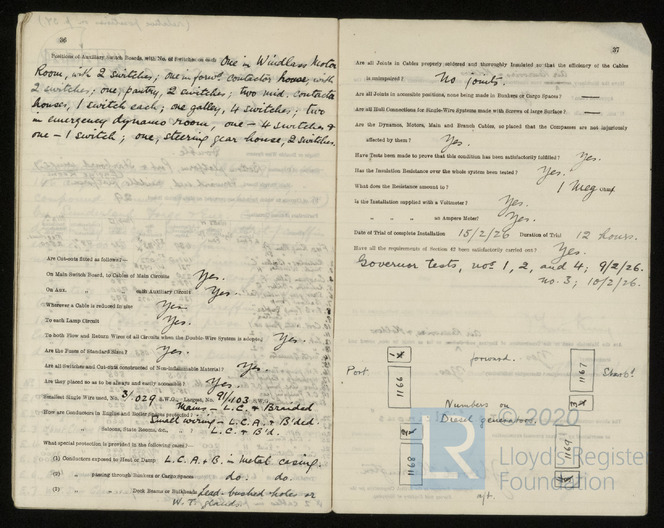 36
Positions of Auxiliary Switch Boards, with No. of Switches on each One in Windlass Motor
Room, with 2 switches; one in forwd. contactor house, with
2 switches; one, pantry, 2 switches; two mid. contactor
houses, 1 switch each; one galley, 4 switches; two
in emergency dynamo room, one - 4 switches &
one - 1 switch; one, steering gear house, 2 switches.
Are Cut-outs fitted as follows:—
On Main Switch Board, to Cables of Main Circuits Yes.
On Aux. " " each Auxiliary Circuit Yes.
Wherever a Cable is reduced in size Yes.
To each Lamp Circuit Yes.
To both Flow and Return Wires of all Circuits when the Double-Wire System is adopted Yes.
Are the Fuses of Standard Sizes? Yes.
Are all Switches and Cut-outs constructed of Non-inflammable Material? Yes.
Are they placed so as to be always and easily accessible? Yes.
Smallest Single Wire used, No. 3/029 S.W.G., Largest, No. 91/103 S.W.G.
Mains - L.C. & Braided
How are Conductors in Engine and Boiler Spaces protected?
Small wiring - L.C.A. & B'ded.
" " Saloons, State Rooms, &c., L.C. & B'd.
What special protection is provided in the following cases?
(1) Conductors exposed to Heat or Damp L.C.A. & B. in metal casing.
(2) " passing through Bunkers or Cargo Spaces do. do.
(3) " " Deck Beams or Bulkheads Lead bushed holes or
W.T. glands.
37
Are all Joints in Cables properly soldered and thoroughly insulated so that the efficiency of the Cables
is unimpaired? No joints.
Are all Joints in accessible positions, none being made in Bunkers or Cargo Spaces? —
Are all Hull Connections for Single-Wire Systems made with Screws of large Surface? —
Are the Dynamos, Motors, Main and Branch Cables, so placed that the Compasses are not injuriously
affected by them? Yes.
Have Tests been made to prove that this condition has been satisfactorily fulfilled? Yes.
Has the Insulation Resistance over the whole system been tested? Yes.
What does the Resistance amount to? 1 Meg
Is the Installation supplied with a Voltmeter? Yes.
" " " an Ampere Meter? Yes.
Date of Trial of complete Installation 15/2/26 Duration of Trial 12 hours.
Have all the requirements of Section 42 been satisfactorily carried out? Yes.
Governor tests, nos. 1, 2, and 4; 9/2/26.
no. 3; 10/2/26.
forward.
Port.
Starbd.
1
1166
1167
3
Numbers on
Diesel generators.
2
1168
1169
4
aft.
LR
© 2020
Lloyds Register
Foundation